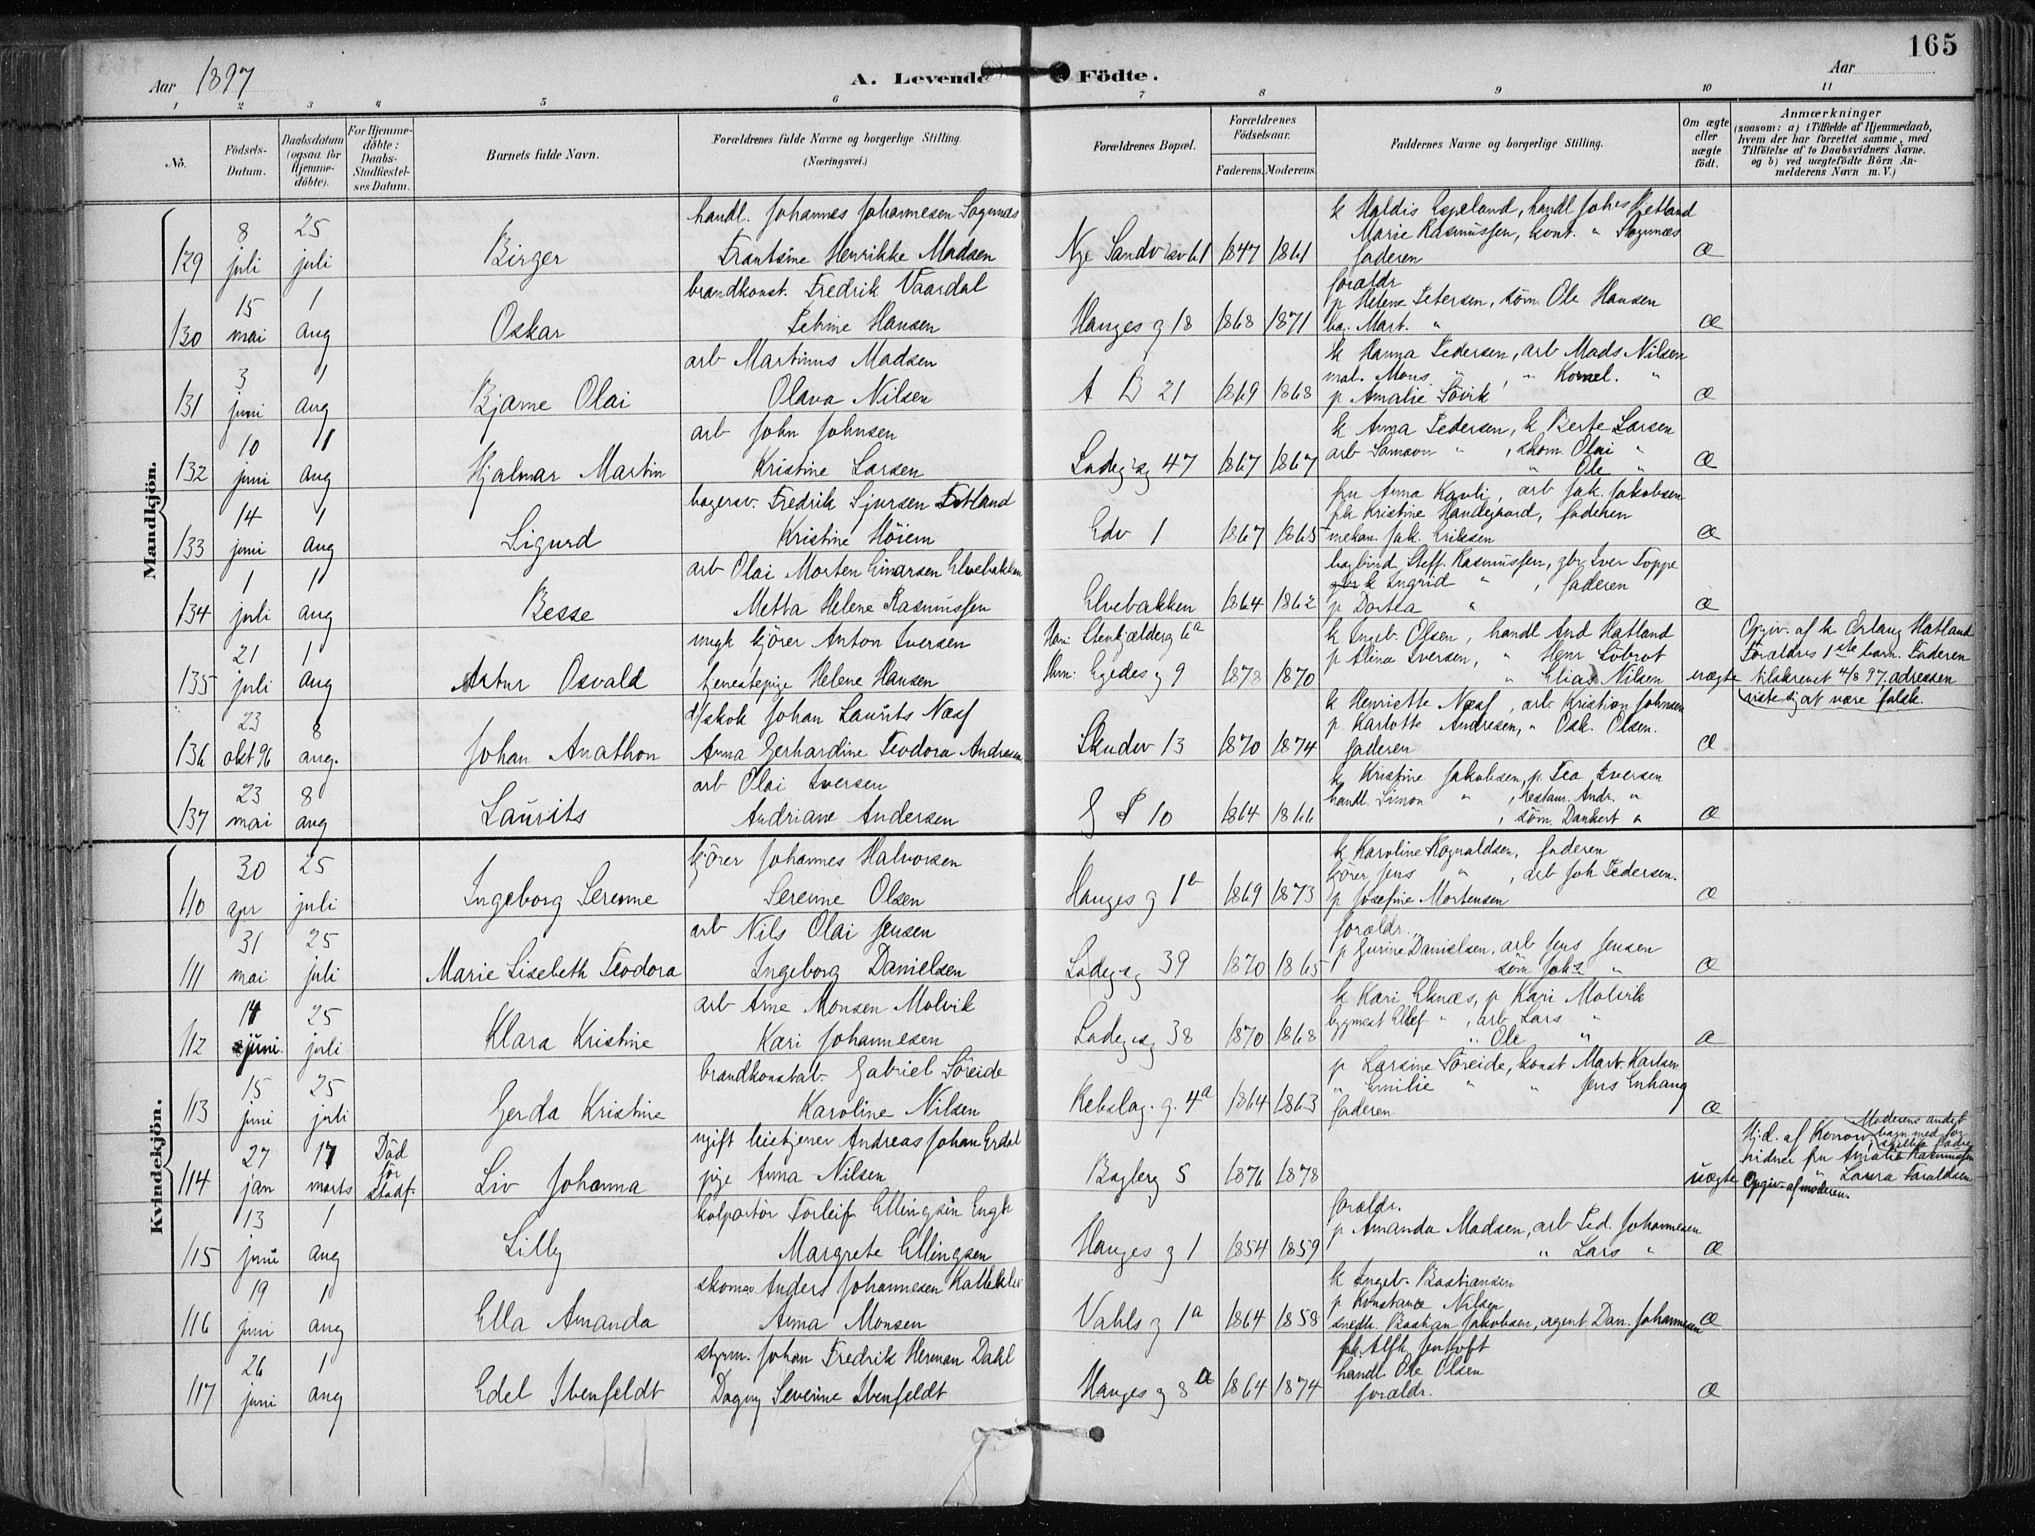 165
Aar 1897
A. Levende Födte.
Aar
1 2 3 4 5 6 7 8 9 10 11
No.
Födsels-Datum.
Daabsdatum (ogsaa för Hjemme-döbte).
For Hjemme-döbte: Daabs-Stadfæstel-ses Datum.
Barnets fulde Navn.
Forældrenes fulde Navne og borgerlige Stilling. (Næringsvei.)
Forældrenes Bopæl.
Forældrenes Födselsaar.
Faderens. Moderens.
Faddernes Navne og borgerlige Stilling.
Om ægte eller uægte födt.
Anmærkninger
(saasom: a) i Tilfælde af Hjemmedaab, hvem der har forrettet samme, med Tilföielse af to Daabsvidners Navne. og b) ved uægtefödte Börn An-melderens Navn m. V.)
Mandkjön.
handl. Johannes Johannesen Sognnæs
k Haldis Espeland, handl Johs Hjetland
8 25
Marie Rasmussen, kont. " Sognnæs
129 juli juli Birger Frantsine Henrikke Madsen Nye Sandv 61 1847 1861 faderen æ
brandkonst. Fredrik Vaardal
foraldr
15 1
p Helene Petersen, söm. Ole Hansen
130 mai aug Oskar Petrine Hansen Hauges g 18 1868 1871 bag. Mart. " æ
arb Martinus Madsen
k Hanna Pedersen, arb Mads Nilsen
3 1
mal. Mons. " , " Kornel. "
131 juni aug Bjarne Olai Olava Nilsen A B 21 1869 1868 p Amalie Lövik æ
arb John Johnsen
k Anna Pedersen, k Berte Larsen
10 1
arb Samson " , skom. Olai "
132 juni aug Hjalmar Martin Kristine Larsen Ladeg 47 1867 1867 " Ole " æ
bagersv. Fredrik Sjursen Fotland
fru Anna Kavli, arb Jak. Jakobsen
14 1
frk Kristine Handegaard, faderen
133 juni aug Sigurd Kristine Höiem Edv 1 1867 1865 mekan. Jak. Eriksen æ
arb Olai Morten Einarsen Elvebakken
bogbind. Steff. Rasmussen, gbr Iver Toppe
1 1
k Ingrid " , faderen
134 juli aug Besse Metta Helene Rasmussen Elvebakken 1864 1862 p Dortea " æ
ungk kjörer Anton Iversen
Ham: Stenkjælderg 6a
k Ingeb. Olsen, handl And Hatland
Opgiv. af k Erlaug Hatland
21 1
p Alina Iversen, " Henr Löbrot
Forældres 1ste barn. Faderen
135 juli aug Artur Osvald tjenestepige Helene Hansen Hun: Egedes g 9 1873 1870 " Elias Nilsen uægte tilskrevet 4/8 97. adressen
viste sig at være falsk.
d/skok Johan Laurits Næss
k Henriette Næss, arb Kristian Johnsen
23 8
p Karlotte Andresen, " Osk. Olsen.
136 okt 96 aug. Johan Anathon Anna Gerhardine Teodora Andresen Skudev 13 1870 1874 faderen æ
arb Olai Iversen
k Kristine Jakobsen, p. Tea Iversen
23 8
handl. Simon " , restaur. Andr. "
137 mai aug Laurits Andriane Andersen 10 1864 1866 , söm. Dankert " æ
Kvindekjön.
kjörer Johannes Halvorsen
k Karoline Rognaldsen, faderen
30 25
kjörer Jens " , arb Joh Pedersen.
110 apr juli Ingeborg Serenne Serenne Olsen Hauges g 1b 1869 1873 p Josefine Mortensen æ
arb Nils Olai Jensen
forældr.
31 25
p Gurine Danielsen, arb Jens Jensen
111 mai juli Marie Lisebeth Teodora Ingeborg Danielsen Ladeg 39 1870 1865 söm Johs " æ
arb Arne Monsen Molvik
k Kari Eknæs, p Kari Molvik
14 25
bygmest Ellef " , arb Lars "
112 juni juli Klara Kristine Kari Johannesen Ladeg 38 1870 1868 " Ole " æ
brandkonstab. Gabriel Söreide
p Larsine Söreide, konst Mart. Karlsen
15 25
" Emilie " " Jens Enhaug
113 juni juli Gerda Kristine Karoline Nilsen Rebslag. g. 4a 1864 1863 faderen æ
ugift Andreas Johan Erdal
Moderens andet barn med for-skjellig fader
27 17 Död för stadf.
Hj.d. af Konow, vidner fru Amalie Rasmussen
114 jan marts Liv Johanna pige Anna Nilsen Baglerg 5 1876 1878 uægte " Laura Taraldsen
Opgiv. af moderen.
kolportör Torleif Ellingsen Engh
forældr.
13 1
p Amanda Madsen, arb Ped. Johannesen
115 juni aug Lilly Margrete Ellingsen Hauges g 1 1854 1859 " Lars " æ
skomag Anders Johannesen Kalleklev
k Ingeb. Bastiansen
19 1
p Konstance Nilsen
116 juni aug Ella Amanda Anna Monsen Vahls g 1a 1864 1858 snedk. Bastian Jakobsen, agent Dan. Johannesen æ
styrm. Johan Fredrik Herman Dahl
frk. Alfh Jentoft
26 1
handl Ole Olsen
117 juni aug Edel Ibenfeldt Dagny Severine Ibenfeldt Hauges g 8a 1864 1874 forældr. æ